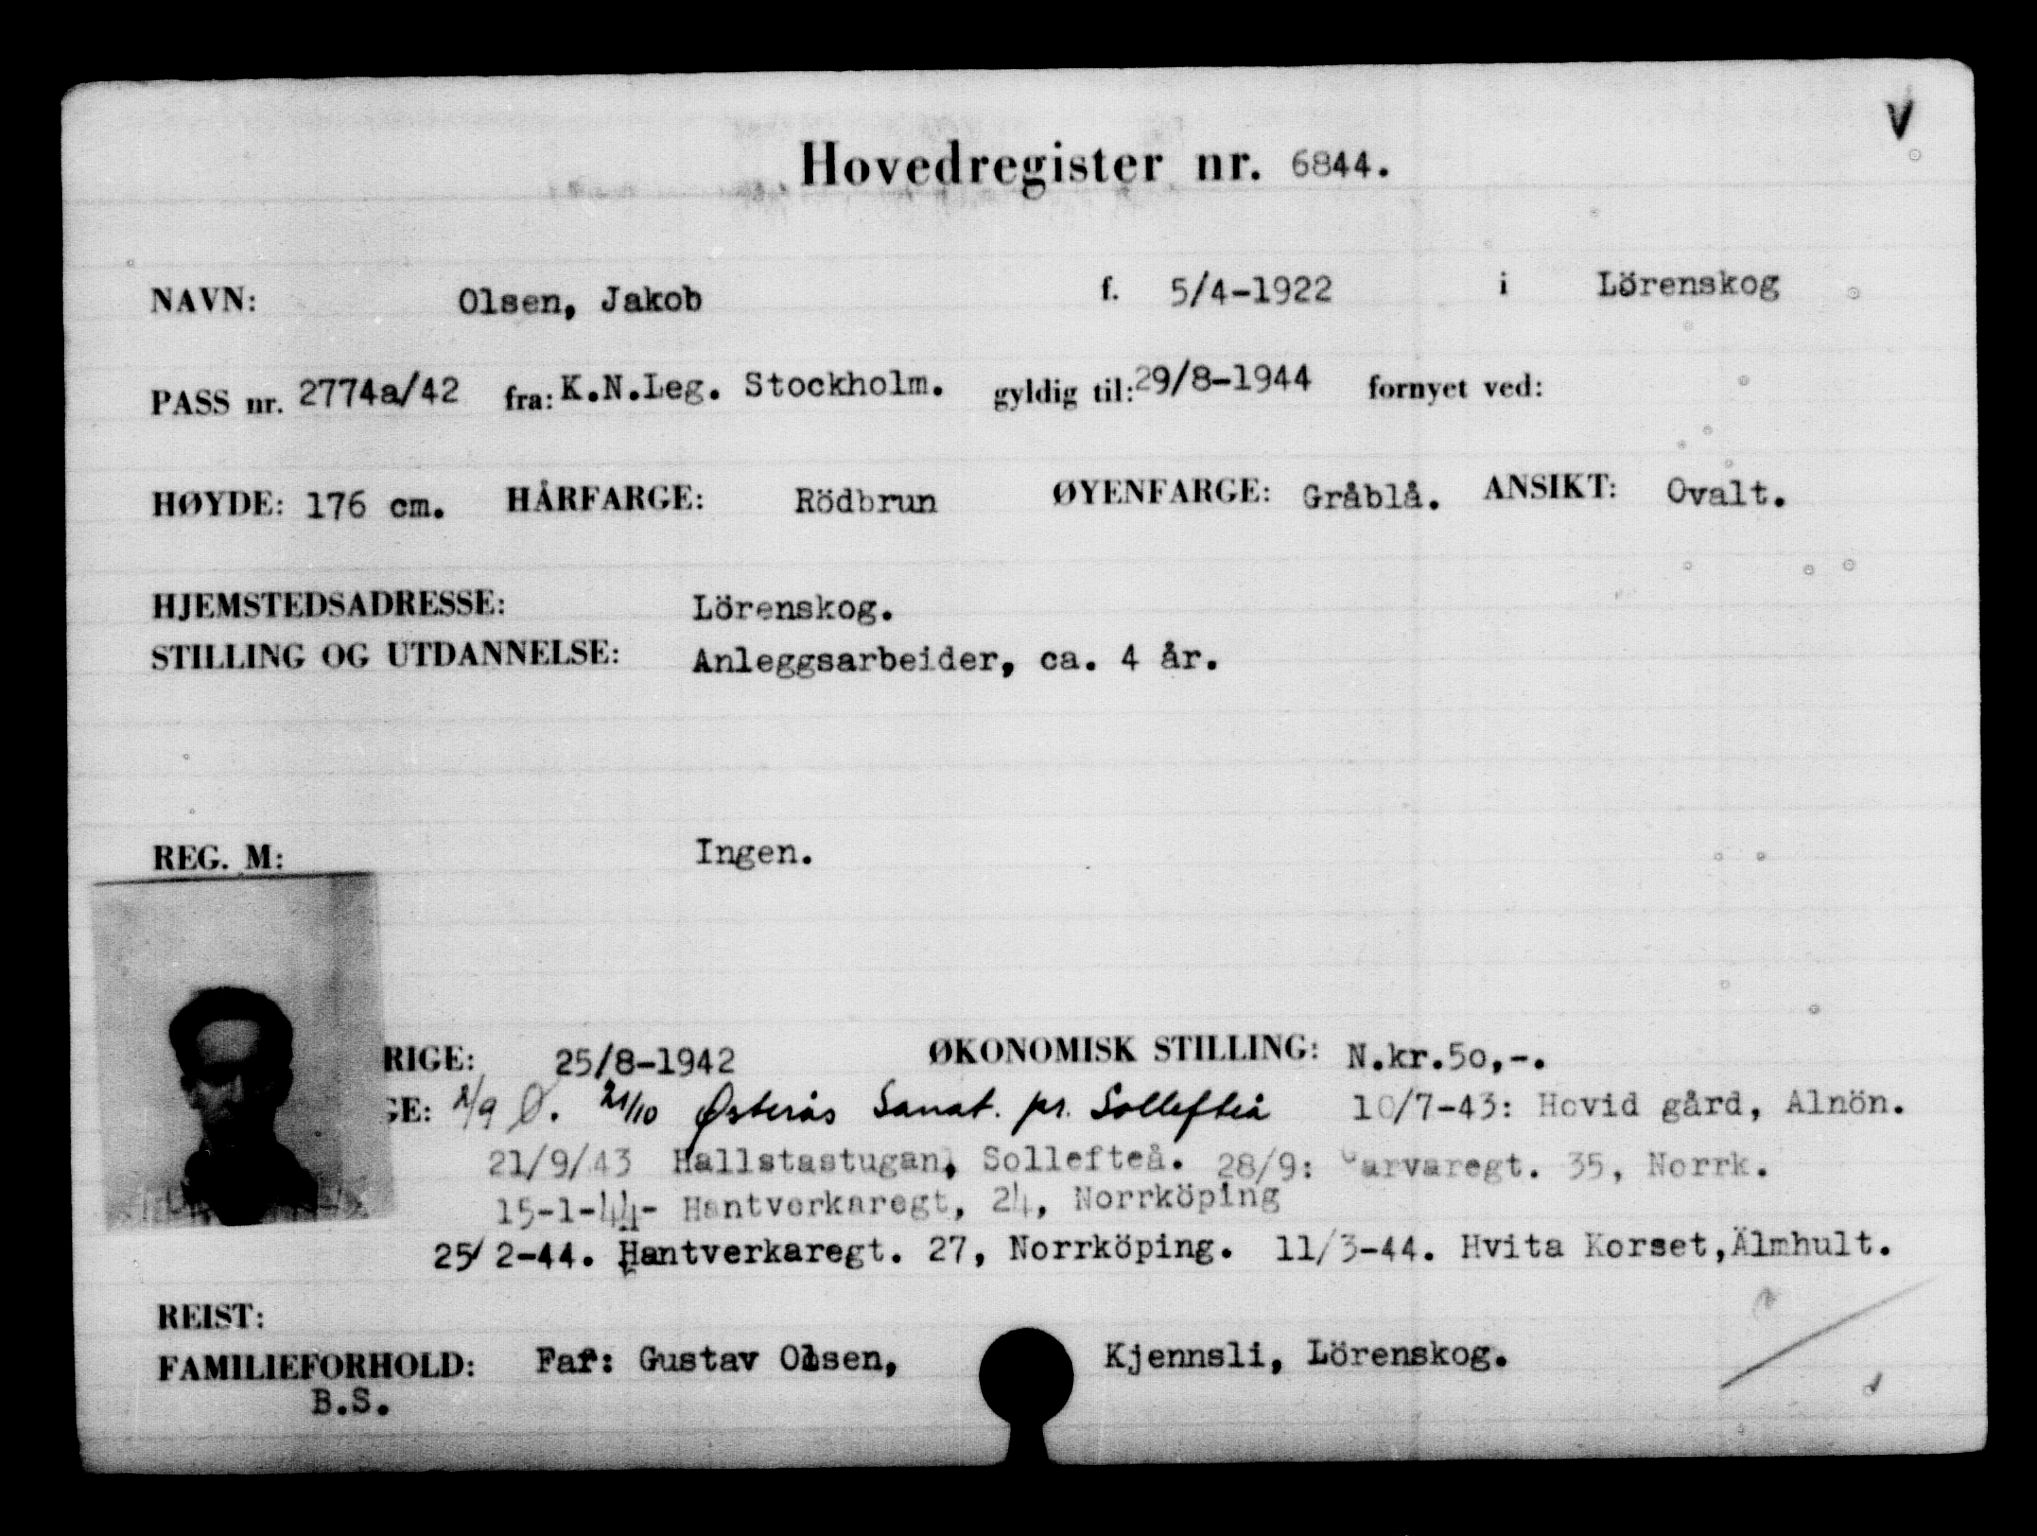 V
Hovedregister nr. 6844.
NAVN: Olsen, Jakob f. 5/4-1922 i Lörenskog
PASS nr. 2774a/42 fra: K.N.Leg. Stockholm. gyldig til: 29/8-1944 fornyet ved:
HØYDE: 176 cm. HÅRFARGE: Rödbrun ØYENFARGE: Gråblå. ANSIKT: Ovalt.
HJEMSTEDSADRESSE: Lörenskog.
STILLING OG UTDANNELSE: Anleggsarbeider, ca. 4 år.
REG. M: Ingen.
RIGE: 25/8-1942 ØKONOMISK STILLING: N.kr.50,-.
GE: 2/9 Ø. 21/10 Østerås Sanat. pr. Sollefteå 10/7-43: Hovid gård, Alnön.
21/9/43 Hallstastugan, Sollefteå. 28/9: arvaregt. 35, Norrk.
15-1-44- Hantverkaregt, 24, Norrköping
25/2-44. Hantverkaregt. 27, Norrköping. 11/3-44. Hvita Korset, Älmhult.
REIST:
FAMILIEFORHOLD: Far: Gustav Olsen, Kjennsli, Lörenskog.
B.S.